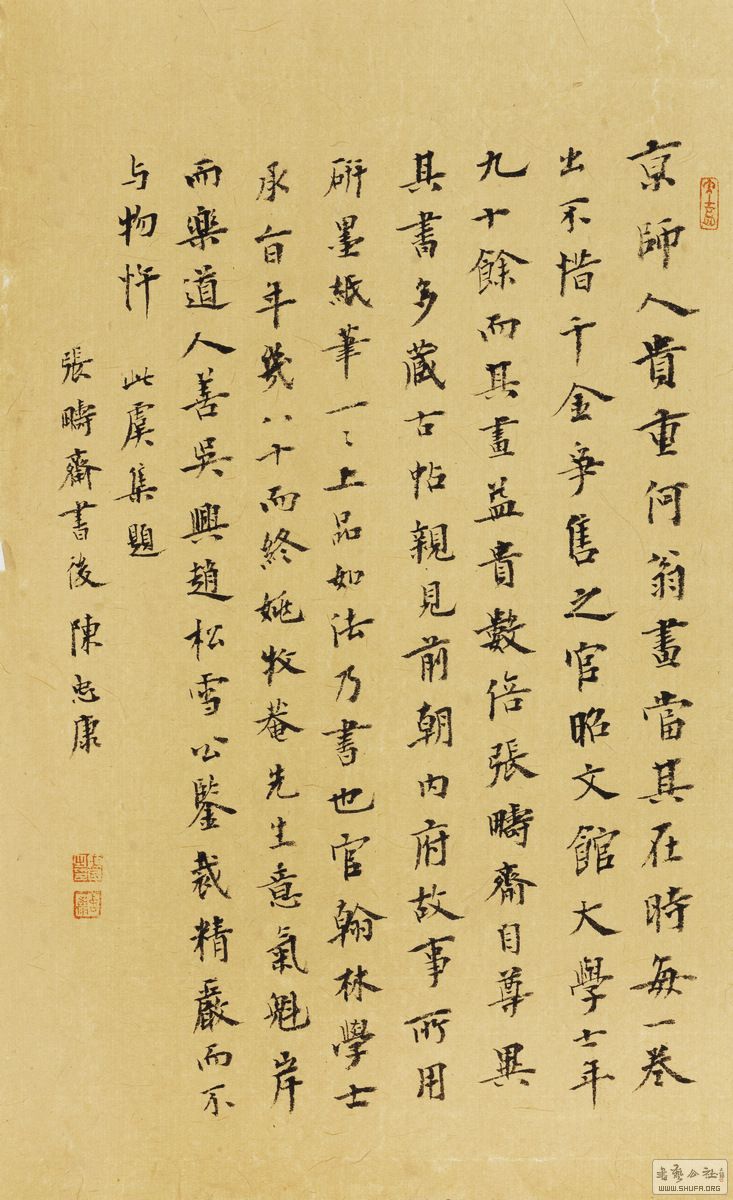 京師人貴重何翁畫當其在時每一卷
出不惜千金争售之官昭文館大學士年
九十餘而其畫益貴數倍張疇齋自尊異
其書多藏古帖親見前朝内府故事所用
研墨紙筆一〻上品如法乃書也官翰林學士
承旨年幾八十而終姚牧菴先生意氣魁岸
而樂道人善吳興趙松雪公鑒裁精嚴而不
与物忤 此虞集題
張疇齋書後 陳忠康
WWW.SHUFA.ORG